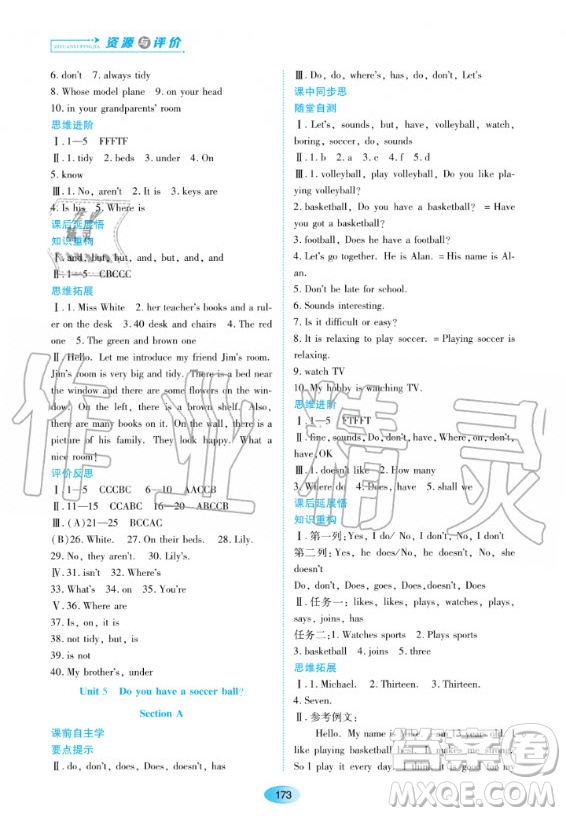 资源与评价
6. don't 7. always tidy
8. Whose model plane 9. on your head
10. in your grandparents' room
思维进阶
Ⅰ. 1—5 FFFTF
Ⅱ. 1. tidy 2. beds 3. under 4. On
5. know
Ⅲ. 1. No, aren't 2. It is 3. in
4. Is his 5. Where is
课后延展悟
知识重构
Ⅰ. and, but, but, and, but, and, and
Ⅱ. 1—5 CBCCC
思维拓展
Ⅰ. 1. Miss White 2. her teacher's books and a rul-
er on the desk 3. 40 desk and chairs 4. The red
one 5. The green and brown one
Ⅱ. Hello. Let me introduce my friend Jim's room.
Jim's room is very big and tidy. There is a bed near
the window and there are some flowers on the win-
dow. I can see a computer on the desk. Also,
there are many books on it. On the wall, there is a
picture of his family. They look happy. What a
nice room!
评价反思
Ⅰ. 1—5 CCCBC 6—10 AACCB
Ⅱ. 11—15 CBCCC 16—20 ACBCB
Ⅲ. (A)21—25 BCCAC
(B)26. White. 27. On their beds. 28. Lily's.
29. No, they aren't. 30. Lily's.
Ⅳ. 31. isn't 32. Where's
33. What's 34. on 35. and
Ⅴ. 36. Where are
37. Is, on, it
38. not tidy, but, is
39. is
40. My brother's, under
Unit 5 Do you have a soccer ball?
Section A
课前自主学
要点提示
Ⅱ. do, don't, does, doesn't, Does, does, doesn't
Ⅲ. Do, do, where's, has, do, don't, Let's
课中同步思
随堂自测
Ⅰ. Let's, sounds, but, have, volleyball, watch,
boring, soccer, do, difficult, has
Ⅱ. 1. do 2. a 3. C 4. but
Ⅲ. 1. volleyball, play volleyball, Do you like pla-
ying volleyball?
2. basketball, Do you have a basketball? = Have
you got a basketball?
3. football, Does he have a football?
4. Let's go together. He is Alan. =His name is Al-
an.
5. Don't be late for school.
6. Sounds interesting.
7. Is it difficult or easy?
8. It is relaxing to play soccer. = Playing soccer is
relaxing.
9. watch TV
10. My hobby is watching TV.
思维进阶
Ⅰ. 1—5 FTFFT
Ⅱ. fine, sounds, Do, have, Where, on, don't,
have, OK
Ⅲ. 1. doesn't have a 2. How many
3. Where do 4. Does, have 5. shall we
课后延展悟
知识重构
Ⅰ. 第一列: Yes, I do/ No, I don't
第二列: Yes, he does/No, he doesn't, No, she
doesn't
Do, don't, Does, goes, Does, doesn't, Does
Ⅱ. 任务一: likes, likes, plays, watches, plays,
says, joins, has
任务二: 1. Watches sports 2. Plays sports
3. basketball 4. soccer 5. three
思维拓展
Ⅰ. 1. Michael. 2. Thirteen. 3. Thirteen.
4. Seven.
Ⅱ. 参考例文:
Hello. My name is Mike. I am 13 years old. I
like playing basketball best. It makes me strong.
So I play it every day. I think it is good for my
173
作业精灵
答案圈